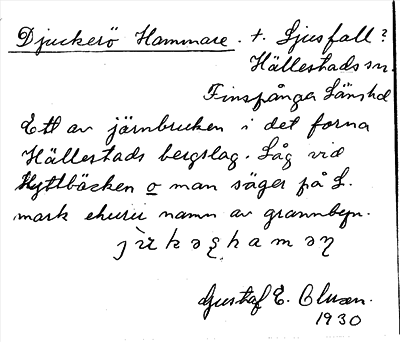 Djuckerö Hammare. +. Ljusfall?
Hällestads sn.
Finspånga Länshd
Ett av järnbruken i det forna
Hällestads bergslag. Låg vid
Hyttbäcken o man säger på L.
mark ehuru namn av grannbyn.
Gustaf E. Olsson.
1930